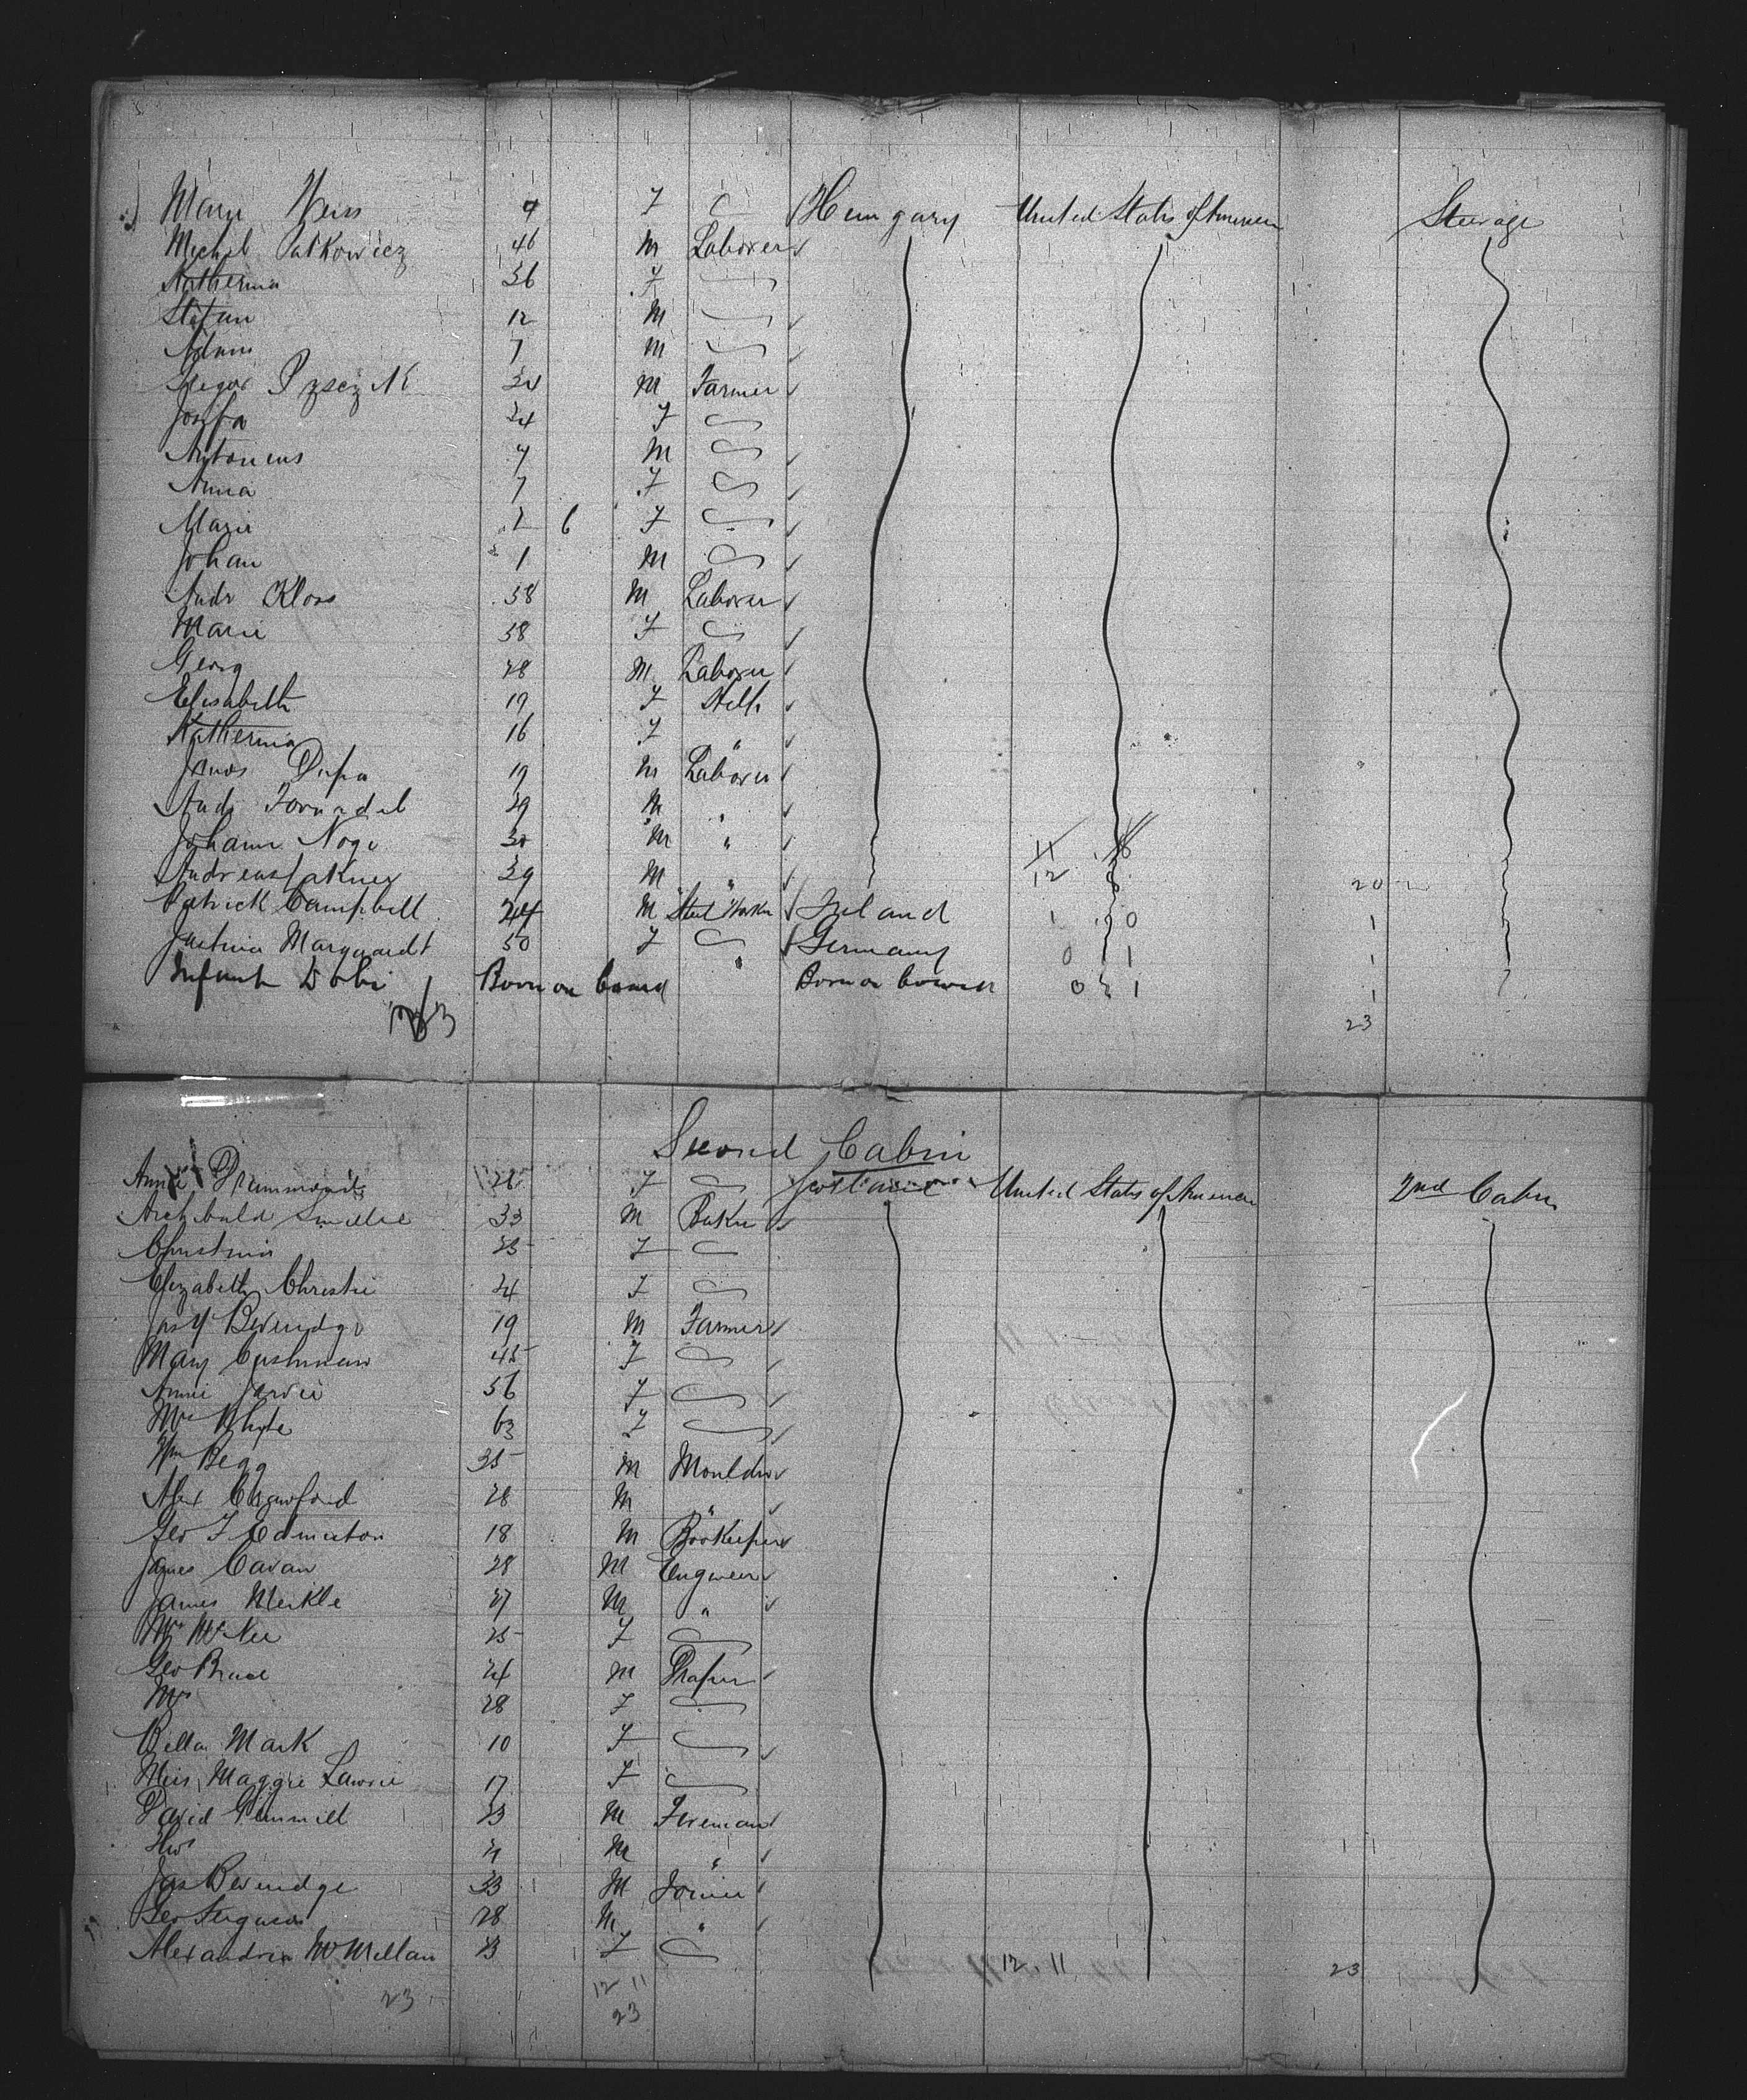 Mary Weiss 9 F Hungary United States of America Steerage
Michel Patkowicz 46 M Laborer
Katherina 36 F
Stefan 12 M
Adam 7 M
Gregor 34 M Farmer
Josefa 34 F
Antonius 9 M
Anna 7 F
Marie 6 F
Johan 1 M
Andr Kloss 58 M Laborer
Marie 58 F
Georg 28 M Laborer
Elisabeth 19 F
Katherina 16 F "
Janos Dupa 19 M Laborer
Andr 39 M "
Johann Nogi 30 M " 11
Andreas 39 M " 12 8 20
Patrick Campbell 24 M Steel Worker Ireland 1 0 1
Justina Marquardt 50 F Germany 0 1 1
Infant Born on board Born on board 0 1 1
23 23
Second Cabin
Annie Drummond F Scotland United States of America 2nd Cabin
Archibald Smellie 33 M Baker
Christina 25 F
Elizabeth Christie 24 F
Jas Y Beveridge 19 M Farmer
Mary Cushman 45 F
Annie Jarvie 56 F
Mrs Whyte 63 F
Wm Begg 35 M Moulder
Alex Crawford 28 M "
Geo F Edmiston 18 M Bookeeper
James Cavan 28 M Engineer
James Meikle 27 M "
Mrs McNee 25 F
Geo Bruce 24 M Draper
Mrs 28 F
Bella Mark 10 F
Miss Maggie Lawrie 17 F
David Gemmill 23 M Fireman
Thos 21 M "
Jas Beveridge 33 M Joiner
Geo Ferguson 28 M "
Alexandria McMillan 23 F 12 11 23
23 12 11
23